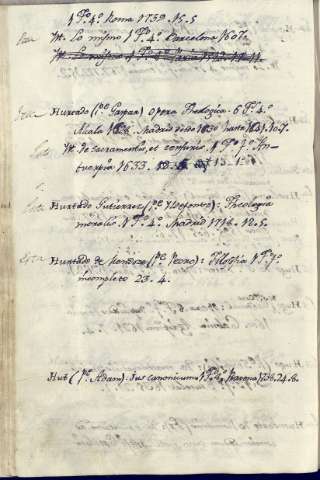 1 Tº 4º Roma 1739. 15. 5
Esta Yt. Lo mismo 1 Tº 4º Barcelona 1607.
Esta Hurtado (Pe Gaspar) Opera Theologica. 6 Ts 4º
Alcala Madrid desde 1630 hasta 1641. 10. 7.
Yt. De Sacramentis, et censuris. 1 Tº Fº An-
tuerpia 1633.
Esta Hurtado Gutierrez (Pe Ildefonso): Theologia
moralis. 1 Tº 4º. Madrid 12. 5.
Esta Hurtado de Mendoza (Pe Pedro): Filosofia 1 Tº Fº
incompleto 23. 4.
Hut (Pe Adam). Jus canonicum. 24. 8.